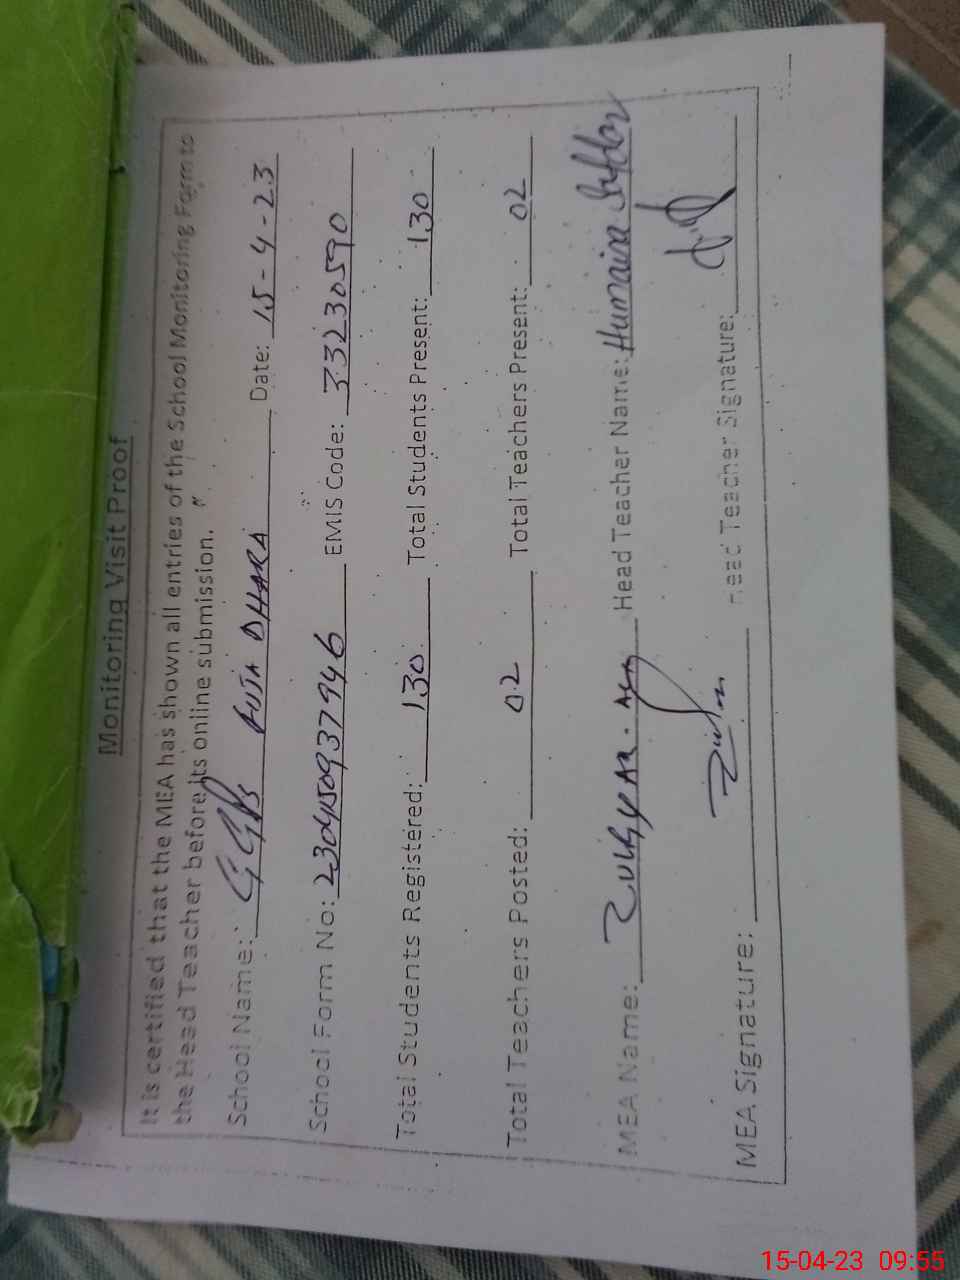 Monitoring Visit Proof
It is certified that the MEA has shown all entries of the School Monitoring Form to
the Head Teacher before its online submission.
School Name: GGPS DHARA Date: 15-4-23
School Form No: 2304150937946 EMIS Code: 33230590
Total Students Registered: 130 Total Students Present: 130
Total Teachers Posted: 02 Total Teachers Present: 02
MEA Name: Head Teacher Name: Humaira
MEA Signature: Head Teacher Signature:
15-04-23 09:55